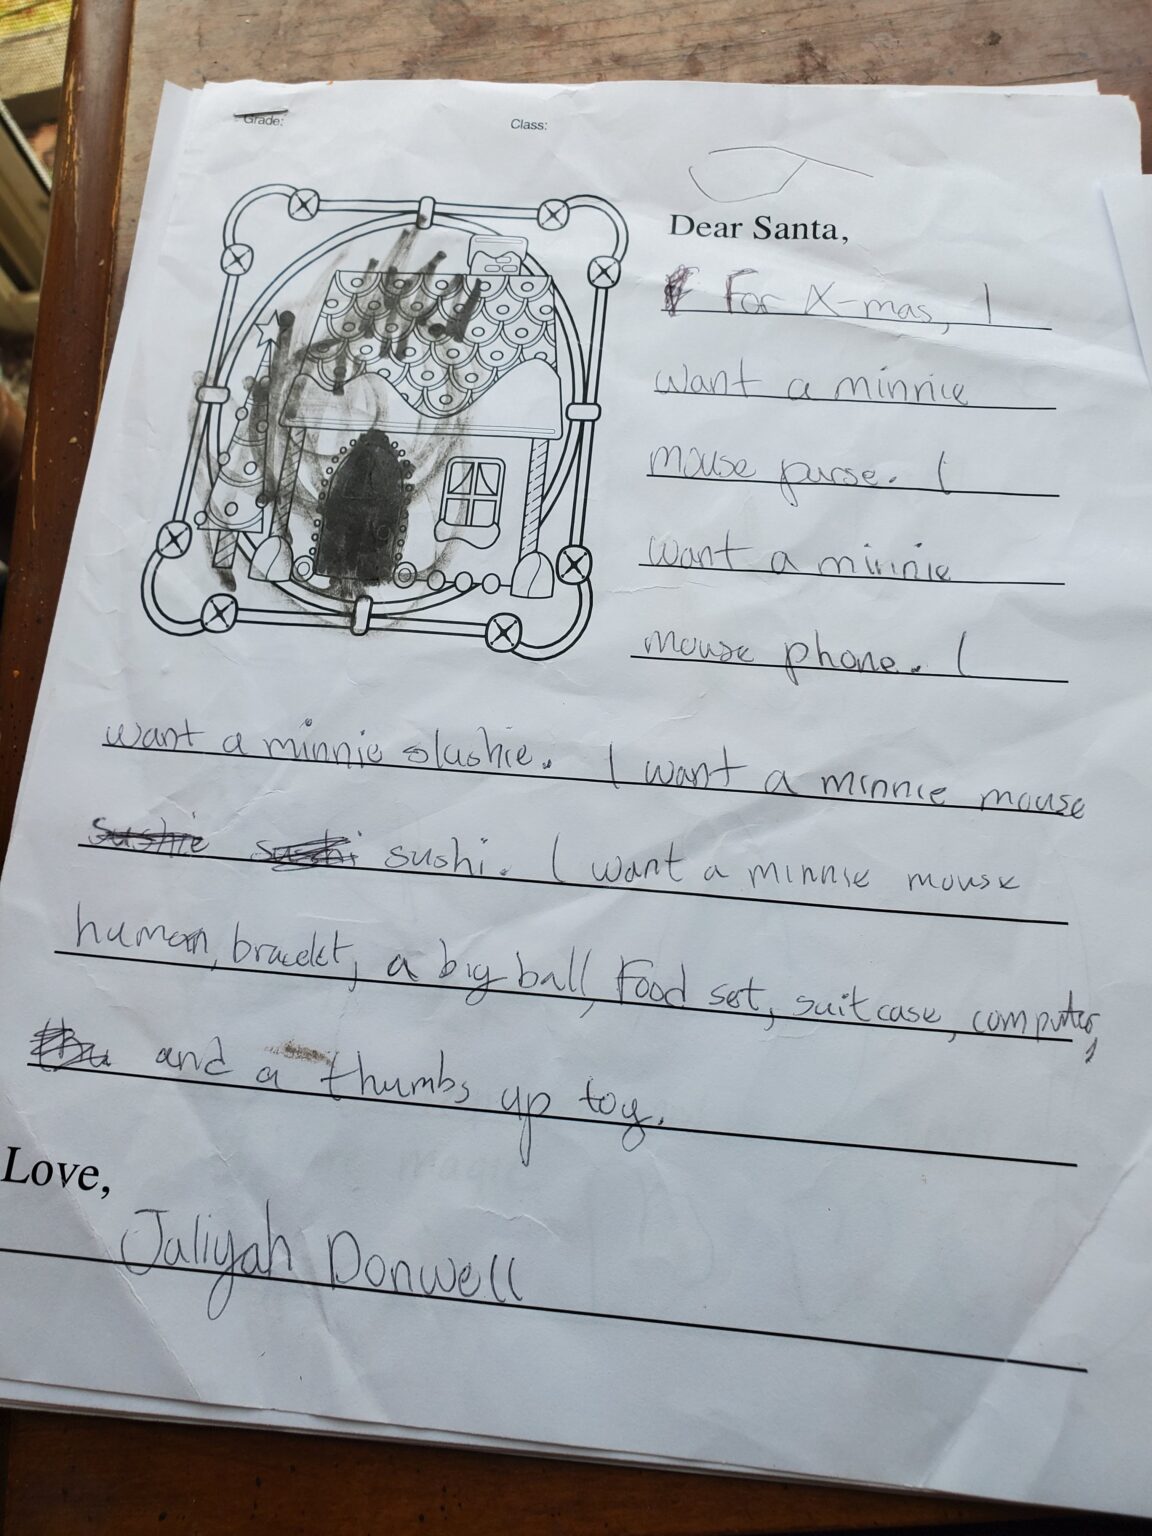 Grade:
Class:
Dear Santa,
For X-mas, I
want a minnie
mouse purse. I
want a minnie
mouse phone. I
want a minnie slushie. I want a minnie mouse
sushie sushi sushi. I want a minnie mouse
human, bracelet, a big ball, Food set, suitcase, computer,
and a thumbs up toy.
Love,
Jaliyah Donwell